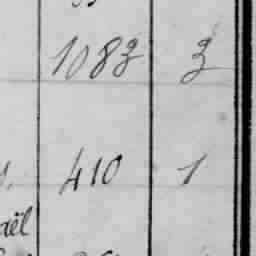 1083 3
410 1
aël